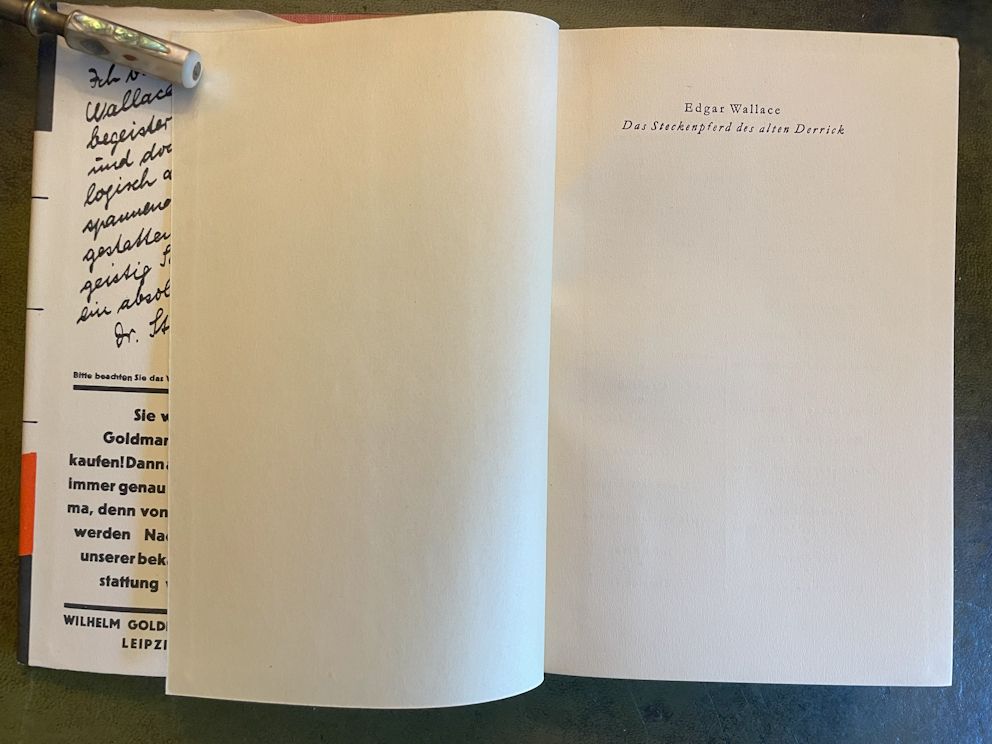 Ich
Wallace
begeister
und doc
logisch a
spannend
gestalten
geistig
ein absol
Dr. St
Bitte beachten Sie das
Sie w
Goldmar
kaufen! Dann
immer genau
ma, denn von
werden Na
unserer bek
stattung
WILHELM GOLD
LEIPZI
Edgar Wallace
Das Steckenpferd des alten Derrick